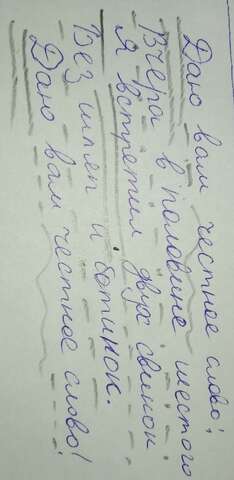 Даю вам честное слово:
Вчера в половине шестого
Я встретил двух свинок
Без шляп и ботинок.
Даю вам честное слово!